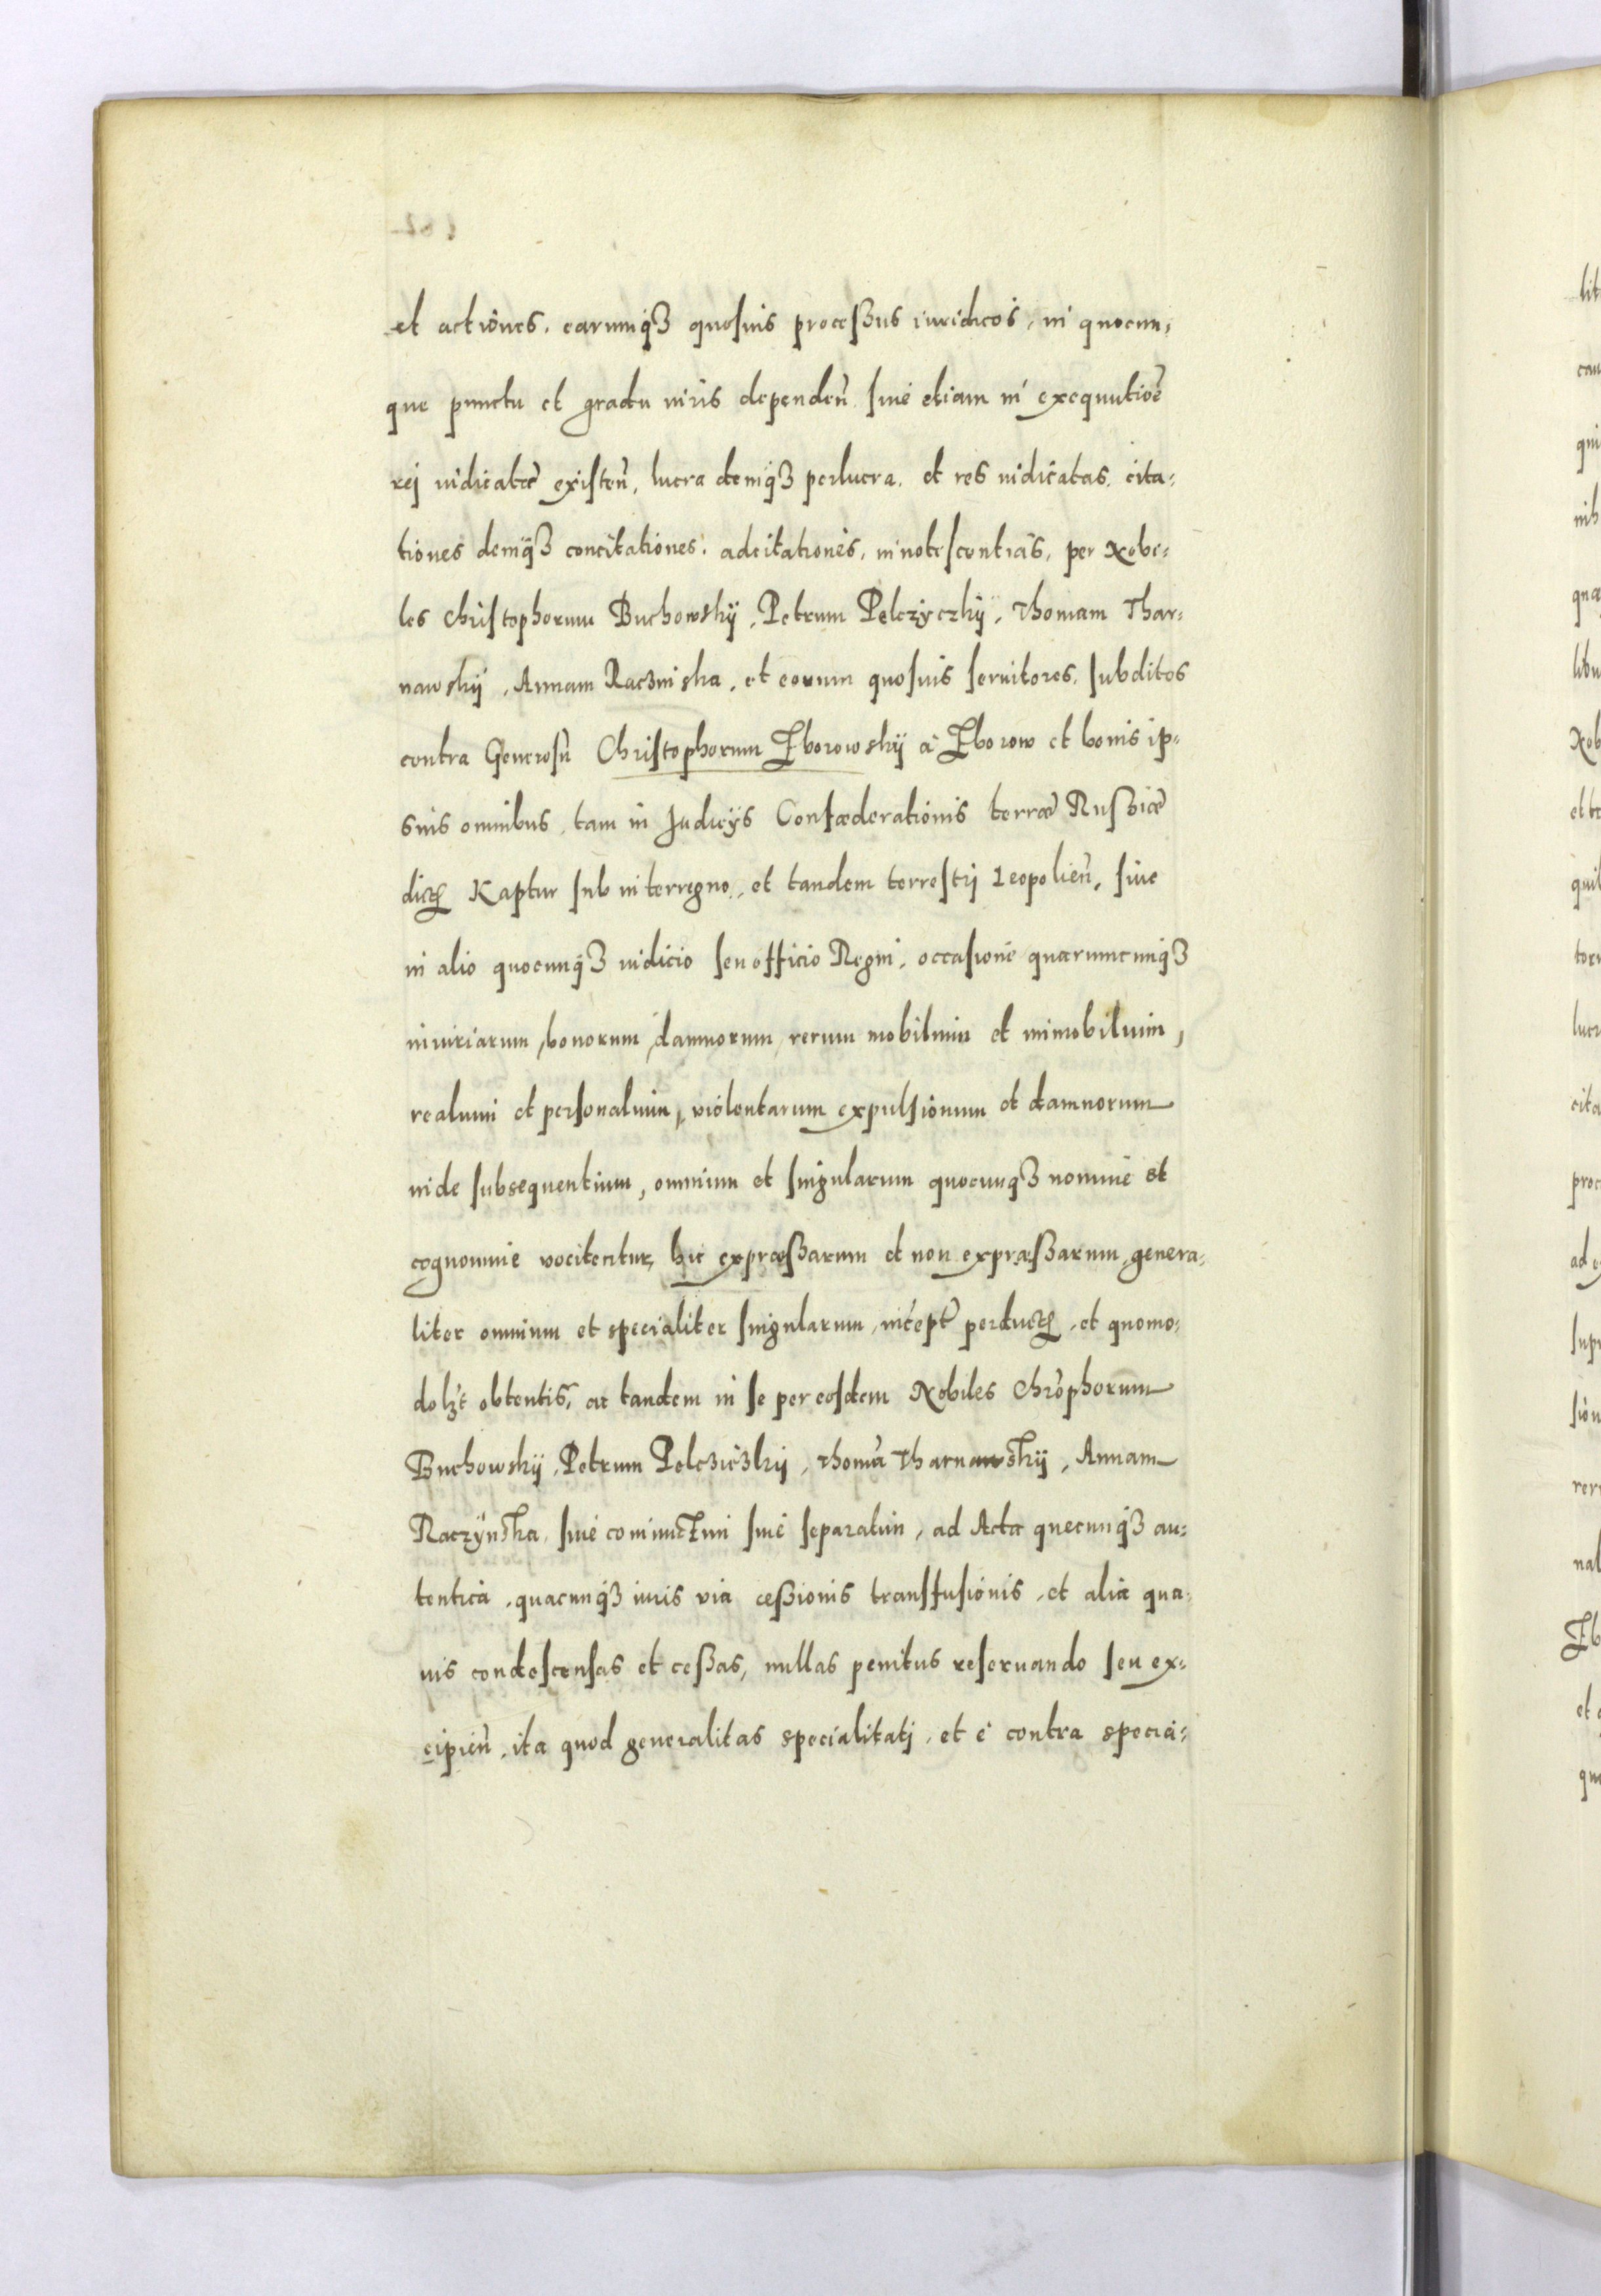 et actiones, earumq́ꝫ quosuis proceßus iuridicos, in quocun-
que punctu et gradu iuris dependen̄ siue etiam in exequutiōe
rej iudicatæ existen̄, lucra deniq́ꝫ perlucra, et res iudicatas, cita-
tiones deniq́ꝫ concitationes, adcitationes, innotescentias, per Nobi-
les Christophorum Buchowskÿ, Petrum Pelczÿczkÿ, Thomam Thar-
nawskÿ, Annam Raczniska, et eorum quosuis seruitores, subditos
contra Generosū Christophorum Zborowskÿ à Zborow et bonis ip-
suis omnibus, tam in Judicÿs Confæderationis terræ Rußiæ
dictꝝ Kaptur sub interregno, et tandem terrestrj Leopolien̄, siue
in alio quocunq́ꝫ iudicio seu officio Regni, occasione quarumcunq́ꝫ
iniuriarum, bonorum, damnorum, rerum mobilium et immobilium,
realium et personalium, violentarum expulsionum et damnorum
inde subsequentium, omnium et singularum quocunq́ꝫ nomine et
cognomine vocitentur, hic expræßarum et non expræßarum, genera-
liter omnium et specialiter singularum, incept̄ perductꝝ, et quomo-
dolꝫt obtentis, ac tandem in se per eosdem Nobiles Chrōphorum
Buchowskÿ, Petrum Pelcziczkÿ, Thomā Tharnawskÿ, Annam
Raczÿnska, siue coniunctim siue separatim, ad Acta quecunq́ꝫ au-
tentica, quacunq́ꝫ iuris via ceßionis transfusionis, et alia qua-
uis condescensas et ceßas, nullas penitus reseruando seu ex-
cipien̄, ita quod generalitas specialitatj, et è contra specia-